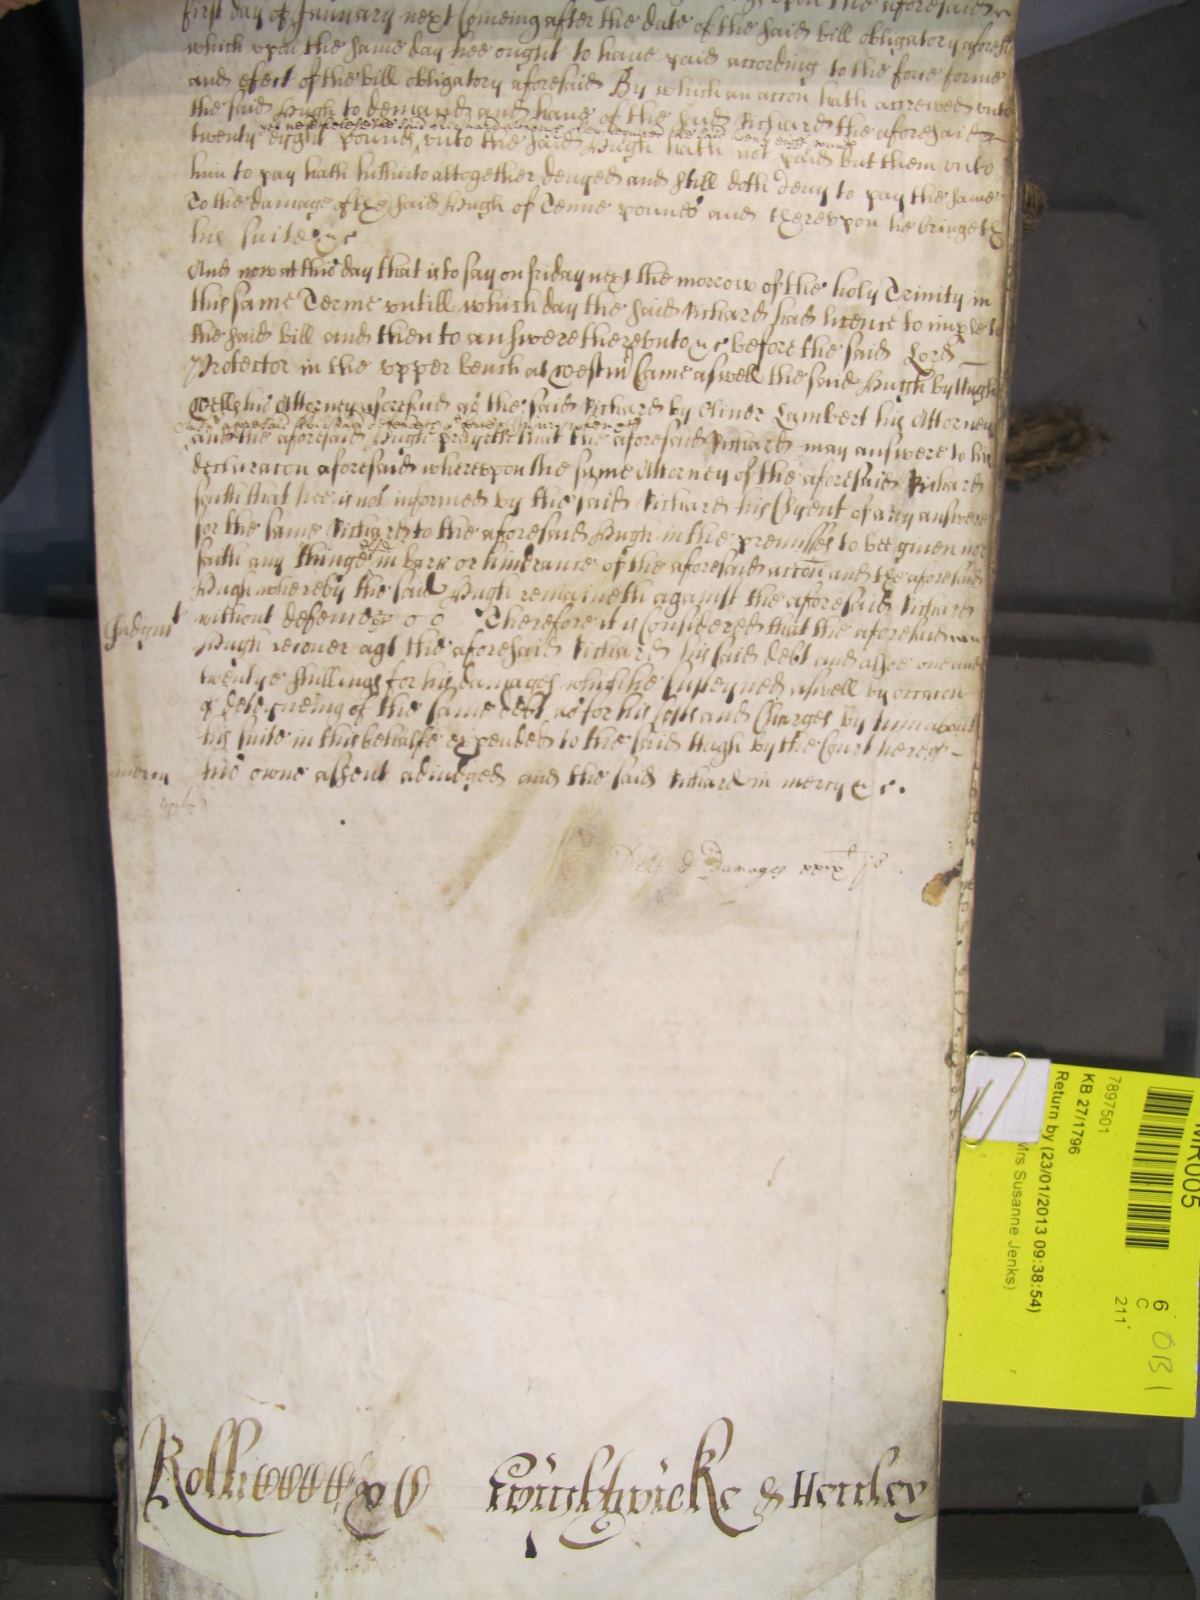 upon the aforesaid
first day of January next Comeing after the date of the said bill obligatory afores
which vpon the same day hee ought to haue paid according to the force forme
and efect of the bill obligatory aforesaid By which an accon hath accrewed vnto
the said Hugh to demand and haue of the said Richard the aforesaid
twenty eight pounds vnto the said Hugh hath not paid but them vnto
him to pay hath hitherto altogether denyed and still doth deny to pay the same
To the damage of the said Hugh of Tenne pounds and therevpon he bringeth
his suite &c
And now at this day that is to say on friday next the morrow of the holy Trinity in
this same Terme vntill which day the said Richard had licence to imparle to
the said bill and then to answere therevnto &c before the said Lord
Protector in the vpper bench at Westm Came aswell the said Hugh by Hugh
Wells his Attorney aforesaid as the said Richard by Oliuer Lambert his Attorney
and the aforesaid Hugh prayeth that the aforesaid Richard may answere to his
declaracon aforesaid wherevpon the same Attorney of the aforesaid Richard
saith that hee is not informed by the said Richard his Clyent of any answere
for the same Richard to the aforesaid Hugh in the premisses to bee giuen nor
saith any thinge in barr or hindrance of the aforesaid accon and the aforesaid
Hugh whereby the said Hugh remaineth against the aforesaid Richard
Judgmt without defence &c Therefore it is Considered that the aforesaid
Hugh recouer agt the aforesaid Richard his said debt and alsoe one and
twentye shillings for his damages which he susteyned aswell by occasion
of deteyneing of the same debt as for his Costs and Charges by him about
his suite in this behalfe expended to the said Hugh by the Court here of
mercy his owne assent adiudged and the said Richard in mercy &c.
Debt & Damages xxix
Rolle
Luckwicke & Henley
MR005
7897501
KB 27/1796
Return by (23/01/2013 09:38:54)
Mrs Susanne Jenks)
6
C
211
OB1